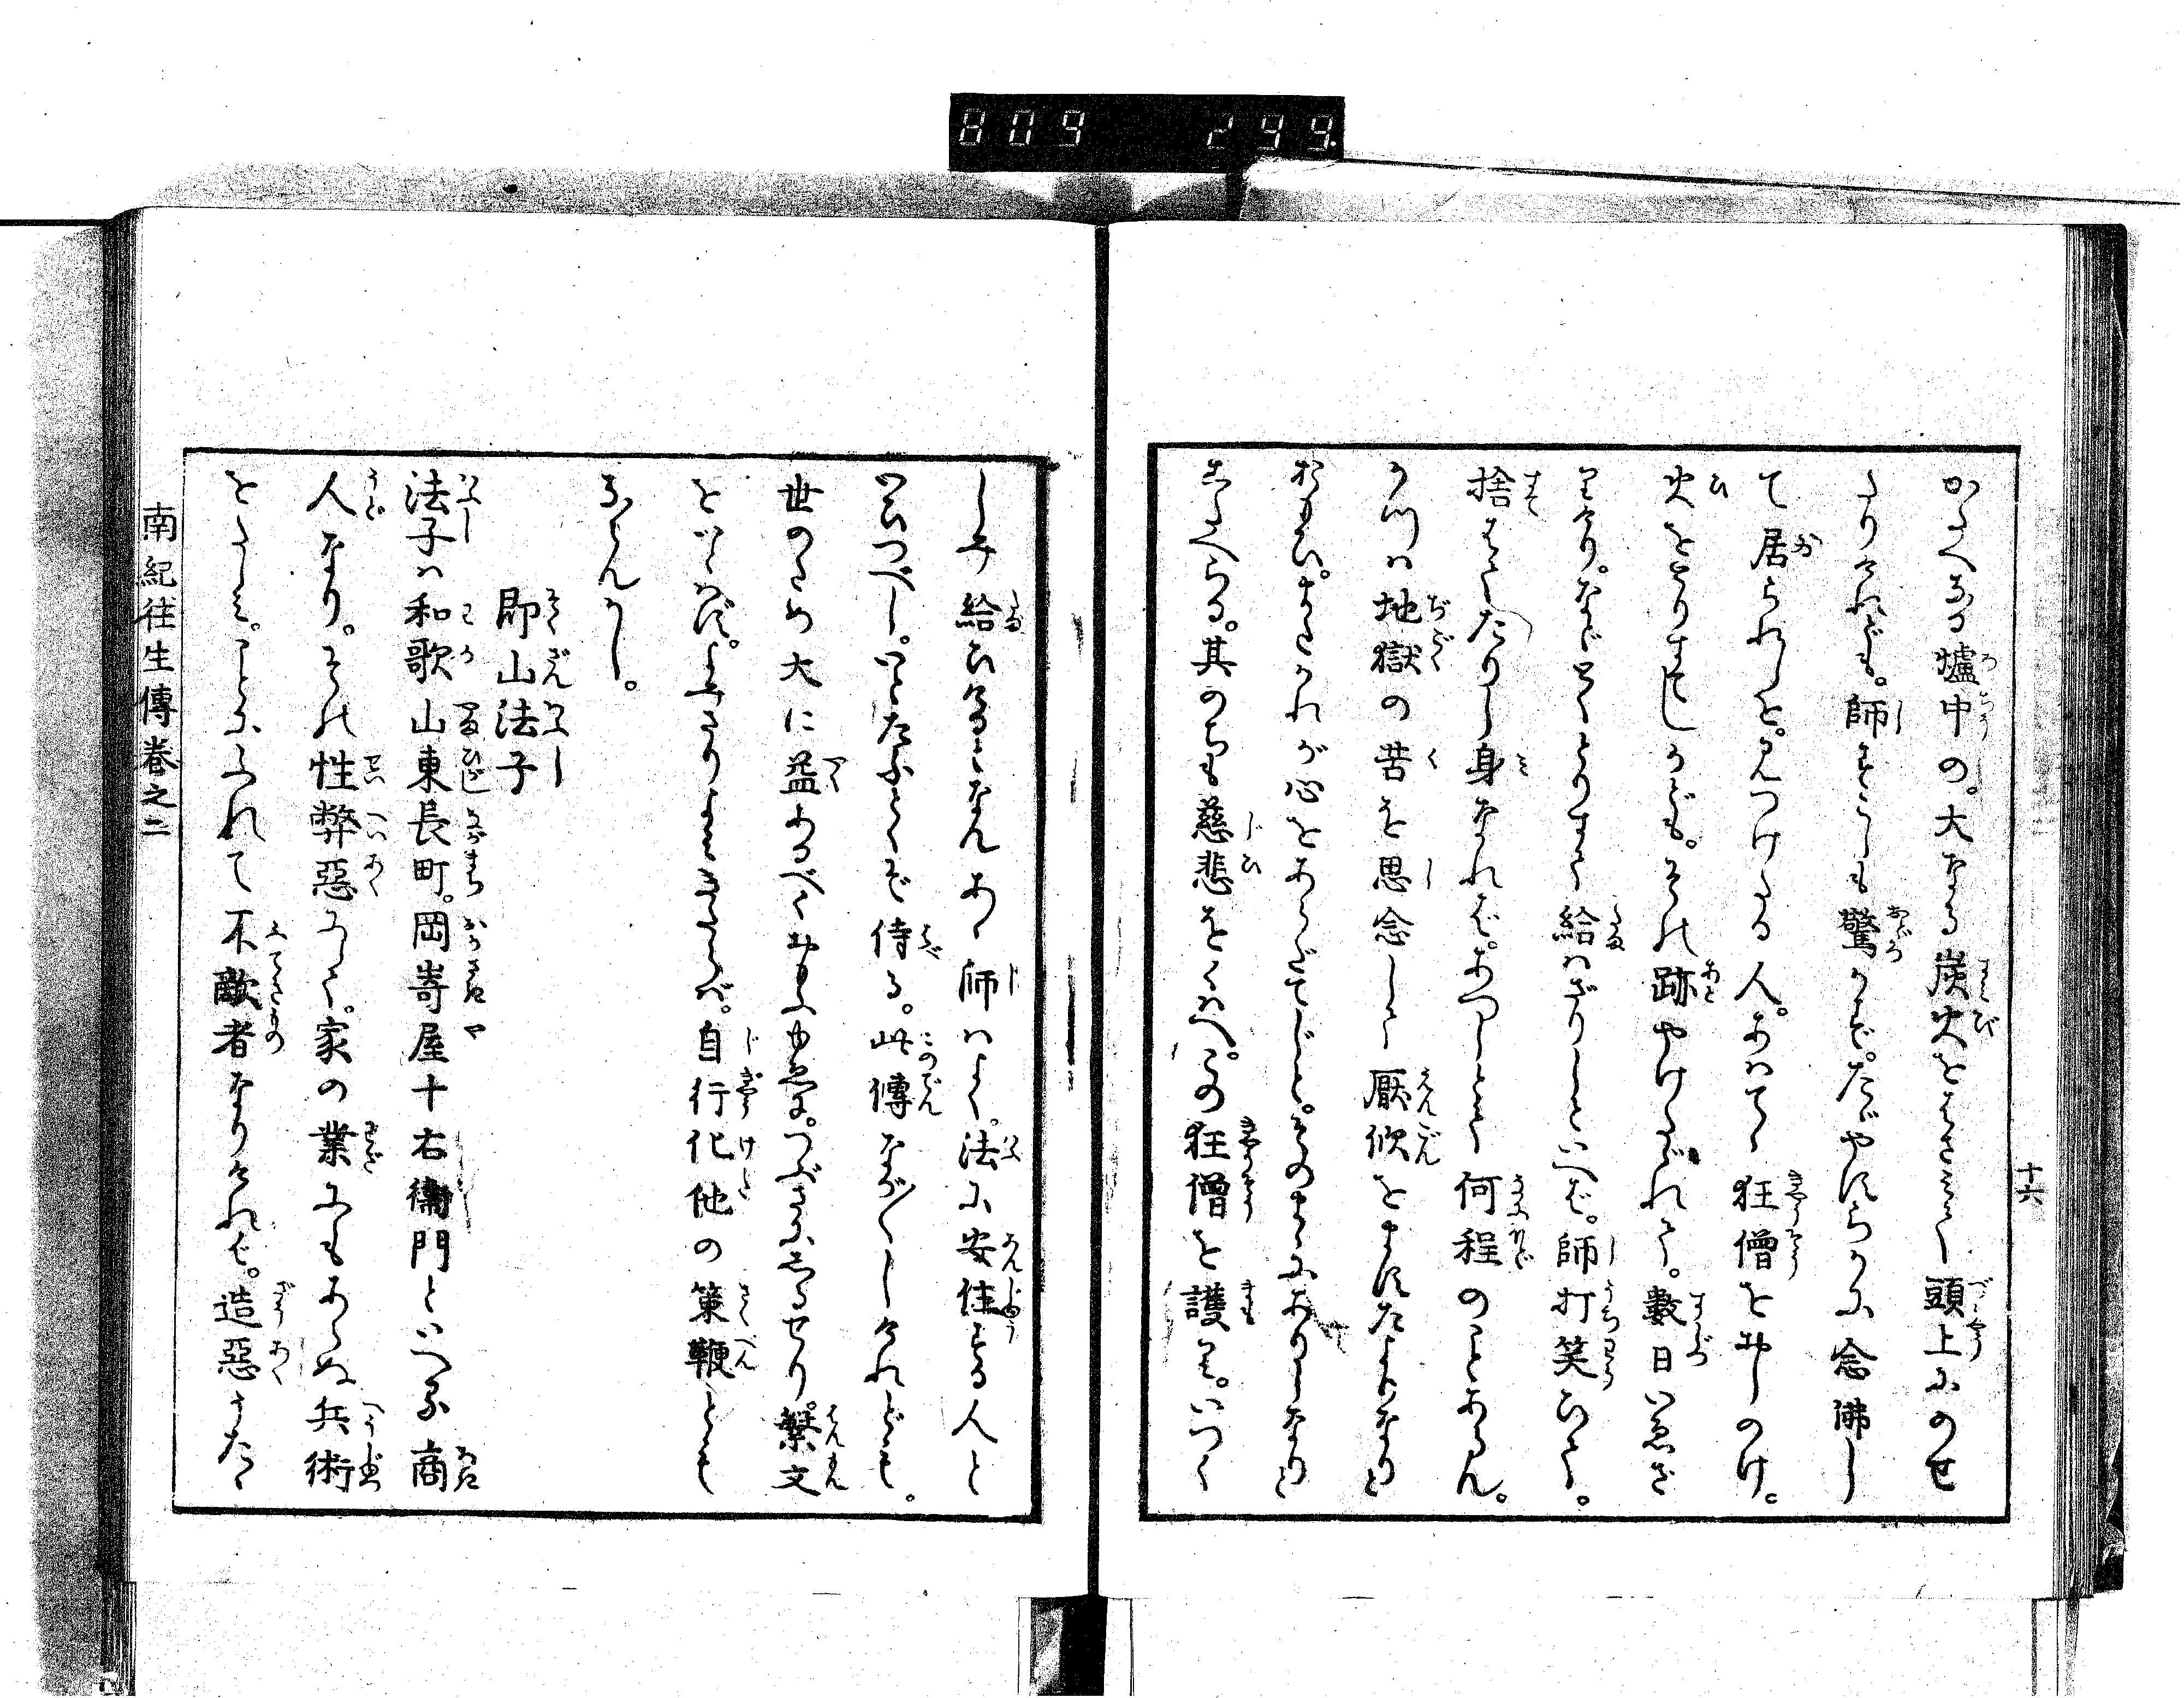 809 299.
十六
かたへなる爐中の。大なる炭火をはさみて頭上にのせ
たりけれども。師はすこしも驚かず。たゞやすらかに念佛し
て居られしを。見つけたる人。あはてゝ狂僧をおしのけ。
火をとりすてしかども。それ跡やけたゞれて。數日いゑざ
りけり。などとくとりすて給はざりしといへば。師打笑ひて。
捨はてたりし身なれば。あつしとて何程のことあらん。
かつは地獄の苦を思念して厭欣をますたよりなりと
おもひ。またかれが心をあらだてじと。そのまゝにありしなりと
こたへらる。其のちも慈悲をくはへ。この狂僧を護り。いつく
しみ給ひけるとなんあゝ師はよく。法に安住する人と
いひつべし。いとたふとくぞ侍る。此傳ながながしけれども。
世のため大に益あるべくおもふゆゑに。つぶさにしるせり。繁文
をいとはず。よみさりよみきたらば。自行化他の策鞭とも
なりなんかし。
即山法子
法子は和歌山東長町。岡嵜屋十右衞門といへる商
人なり。それ性弊惡にして。家の業にもあらぬ兵術
をたしみ。ことにふれて不敵者なりければ。造惡うたゝ
南紀往生傳卷之二